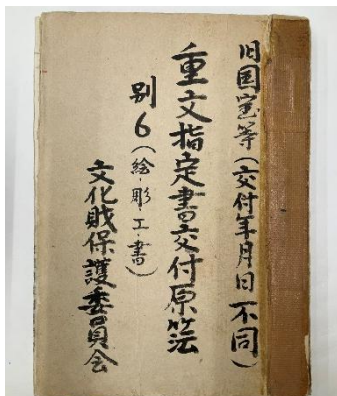 旧国宝等(交付年月日不同)
重文指定書交付原簿
別6(絵・彫・工・書)
文化財保護委員会